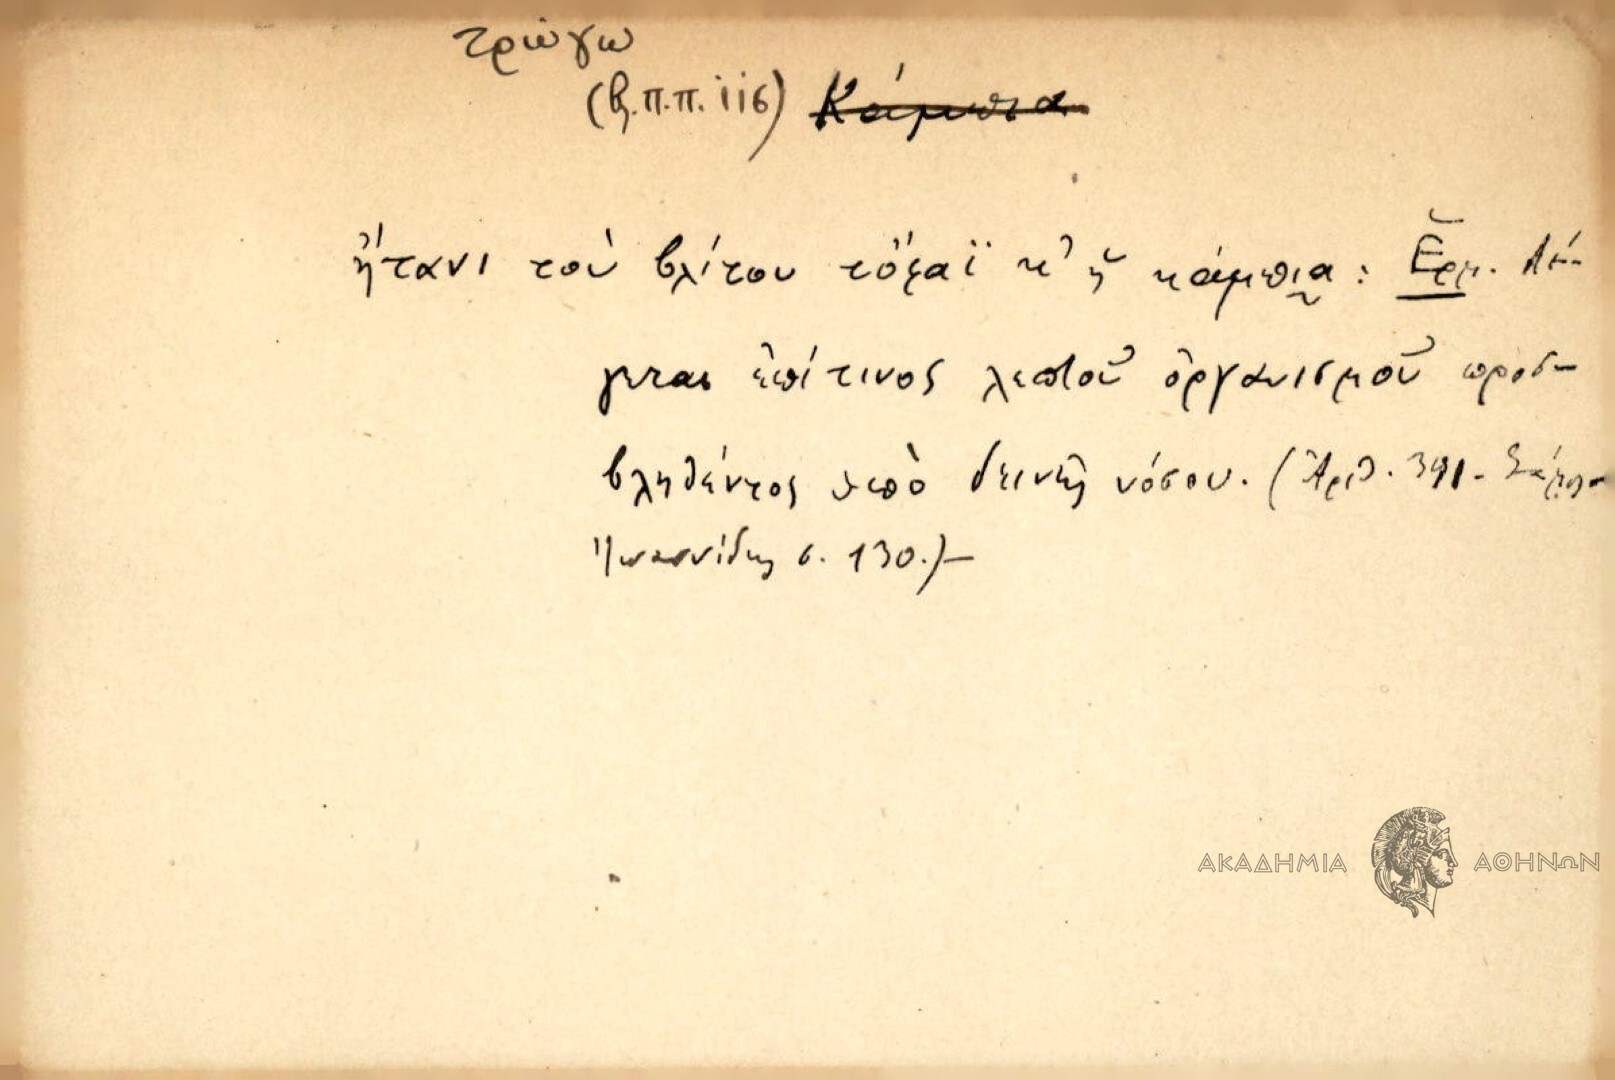 τρώγω
(β.π.π. 116) Κάμπια
ἤτανι τοὺ βλίτου τὄφαϊ κ' ἡ κάμπια : Ἑρμ. Λέ-
γεται ἐπί τινος λεπτοῦ ὀργανισμοῦ προσ-
βληθέντος ὑπὸ δεινῆς νόσου. (Ἀριθ. 391-
Ἰωαννίδης σ. 130.)-
ΑΚΑΔΗΜΙΑ ΑΘΗΝΩΝ